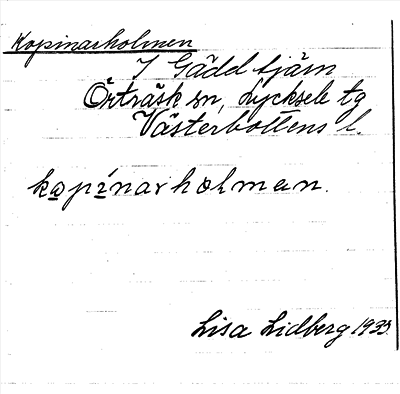 Kopinarholmen
I Gäddtjärn
Örträsk sn, Lycksele tg
Västerbottens l.
kopínarholmen.
Lisa Lidberg 1935